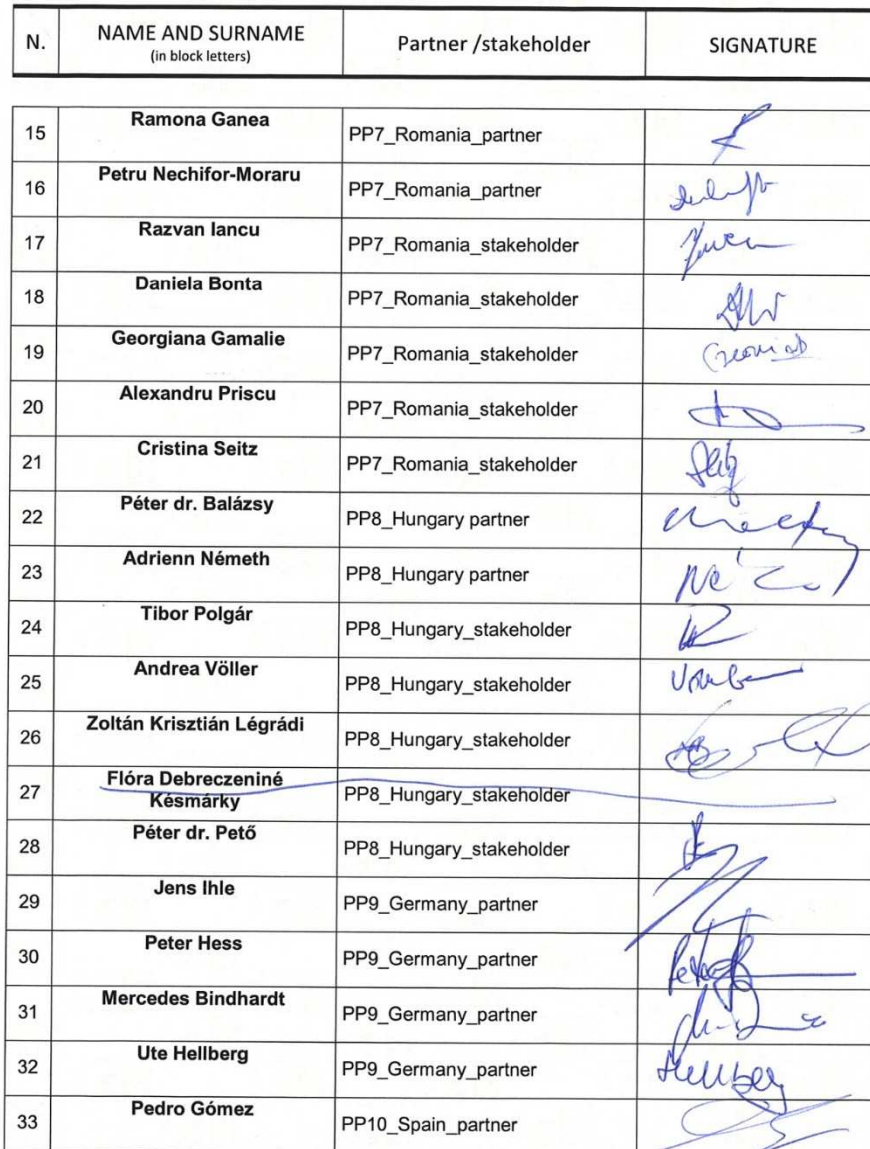 N. NAME AND SURNAME Partner /stakeholder SIGNATURE
(in block letters)
15 Ramona Ganea PP7_Romania_partner
16 Petru Nechifor-Moraru PP7_Romania_partner
17 Razvan Iancu PP7_Romania_stakeholder
18 Daniela Bonta PP7_Romania_stakeholder
19 Georgiana Gamalie PP7_Romania_stakeholder
20 Alexandru Priscu PP7_Romania_stakeholder
21 Cristina Seitz PP7_Romania_stakeholder
22 Péter dr. Balázsy PP8_Hungary partner
23 Adrienn Németh PP8_Hungary partner
24 Tibor Polgár PP8_Hungary_stakeholder
25 Andrea Völler PP8_Hungary_stakeholder
26 Zoltán Krisztián Légrádi PP8_Hungary_stakeholder
27 Flóra Debreczeniné
Késmárky PP8_Hungary_stakeholder
28 Péter dr. Pető PP8_Hungary_stakeholder
29 Jens Ihle PP9_Germany_partner
30 Peter Hess PP9_Germany_partner
31 Mercedes Bindhardt PP9_Germany_partner
32 Ute Hellberg PP9_Germany_partner Hellberg
33 Pedro Gómez PP10_Spain_partner